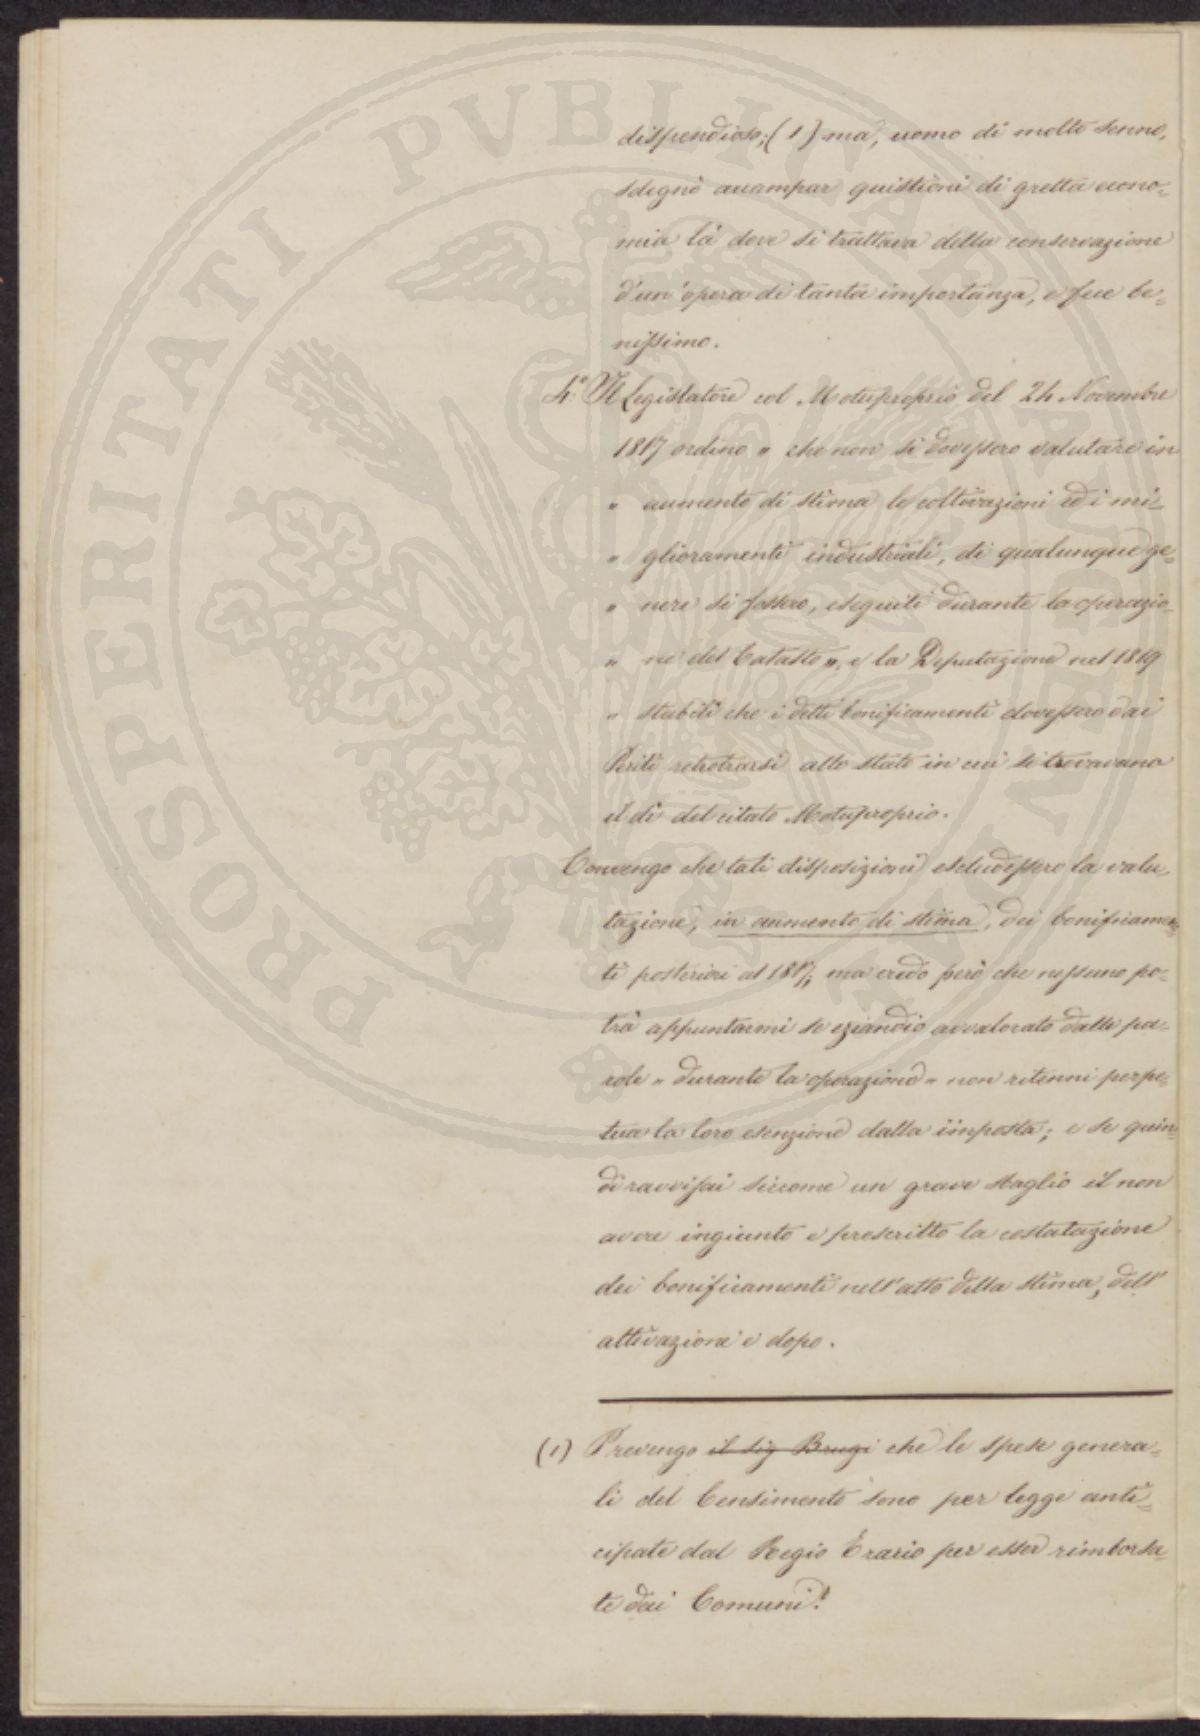 dispendioso; (1) ma, uomo di molto senno,
sdegnò accampar quistioni di gretta econo=
mia là dove si trattava della conservazione
d'un'opera di tanta importanza, e fece be=
nissimo.
4.° Il Legislatore col Motuproprio del 24 Novembre
1817 ordinò " che non si dovessero valutare in
" aumento di stima le coltivazioni ed i mi=
" glioramenti industriali, di qualunque ge=
" nere si fossero, eseguiti durante la operazio=
" ne del Catasto ", e la Deputazione nel 1819
" stabilì che i detti bonificamenti dovessero dai
Periti retrotrarsi allo stato in cui si trovavano
il dì del citato Motuproprio.
Convengo che tali disposizioni escludessero la valu=
tazione, in aumento di stima, dei bonificamen=
ti posteriori al 1817; ma credo però che nessuno po=
trà appuntarmi se eziandio avvalorato dalle pa=
role " durante la operazione " non ritenni perpe=
tua la loro esenzione dalla imposta; e se quin=
di ravvisai siccome un grave sbaglio il non
avere ingiunto e prescritto la costatazione
dei bonificamenti nell'atto della stima, dell'
attivazione e dopo.
(1) Prevengo il Sig Brugi che le spese genera=
li del Censimento sono per legge anti=
cipate dal Regio Erario per esser rimborsa=
te dai Comuni!
PROSPERITATI PVBLICAE AVGENDAE